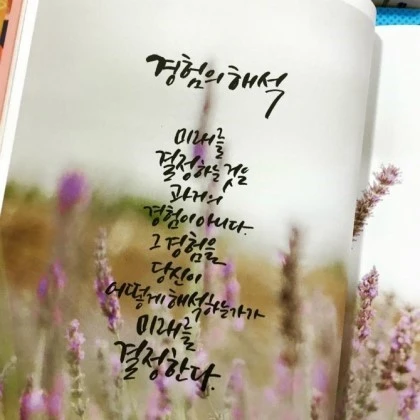 경험의 해석
미래를
결정하는 것은
과거의
경험이 아니다.
그 경험을
당신이
어떻게 해석하는가가
미래를
결정한다.